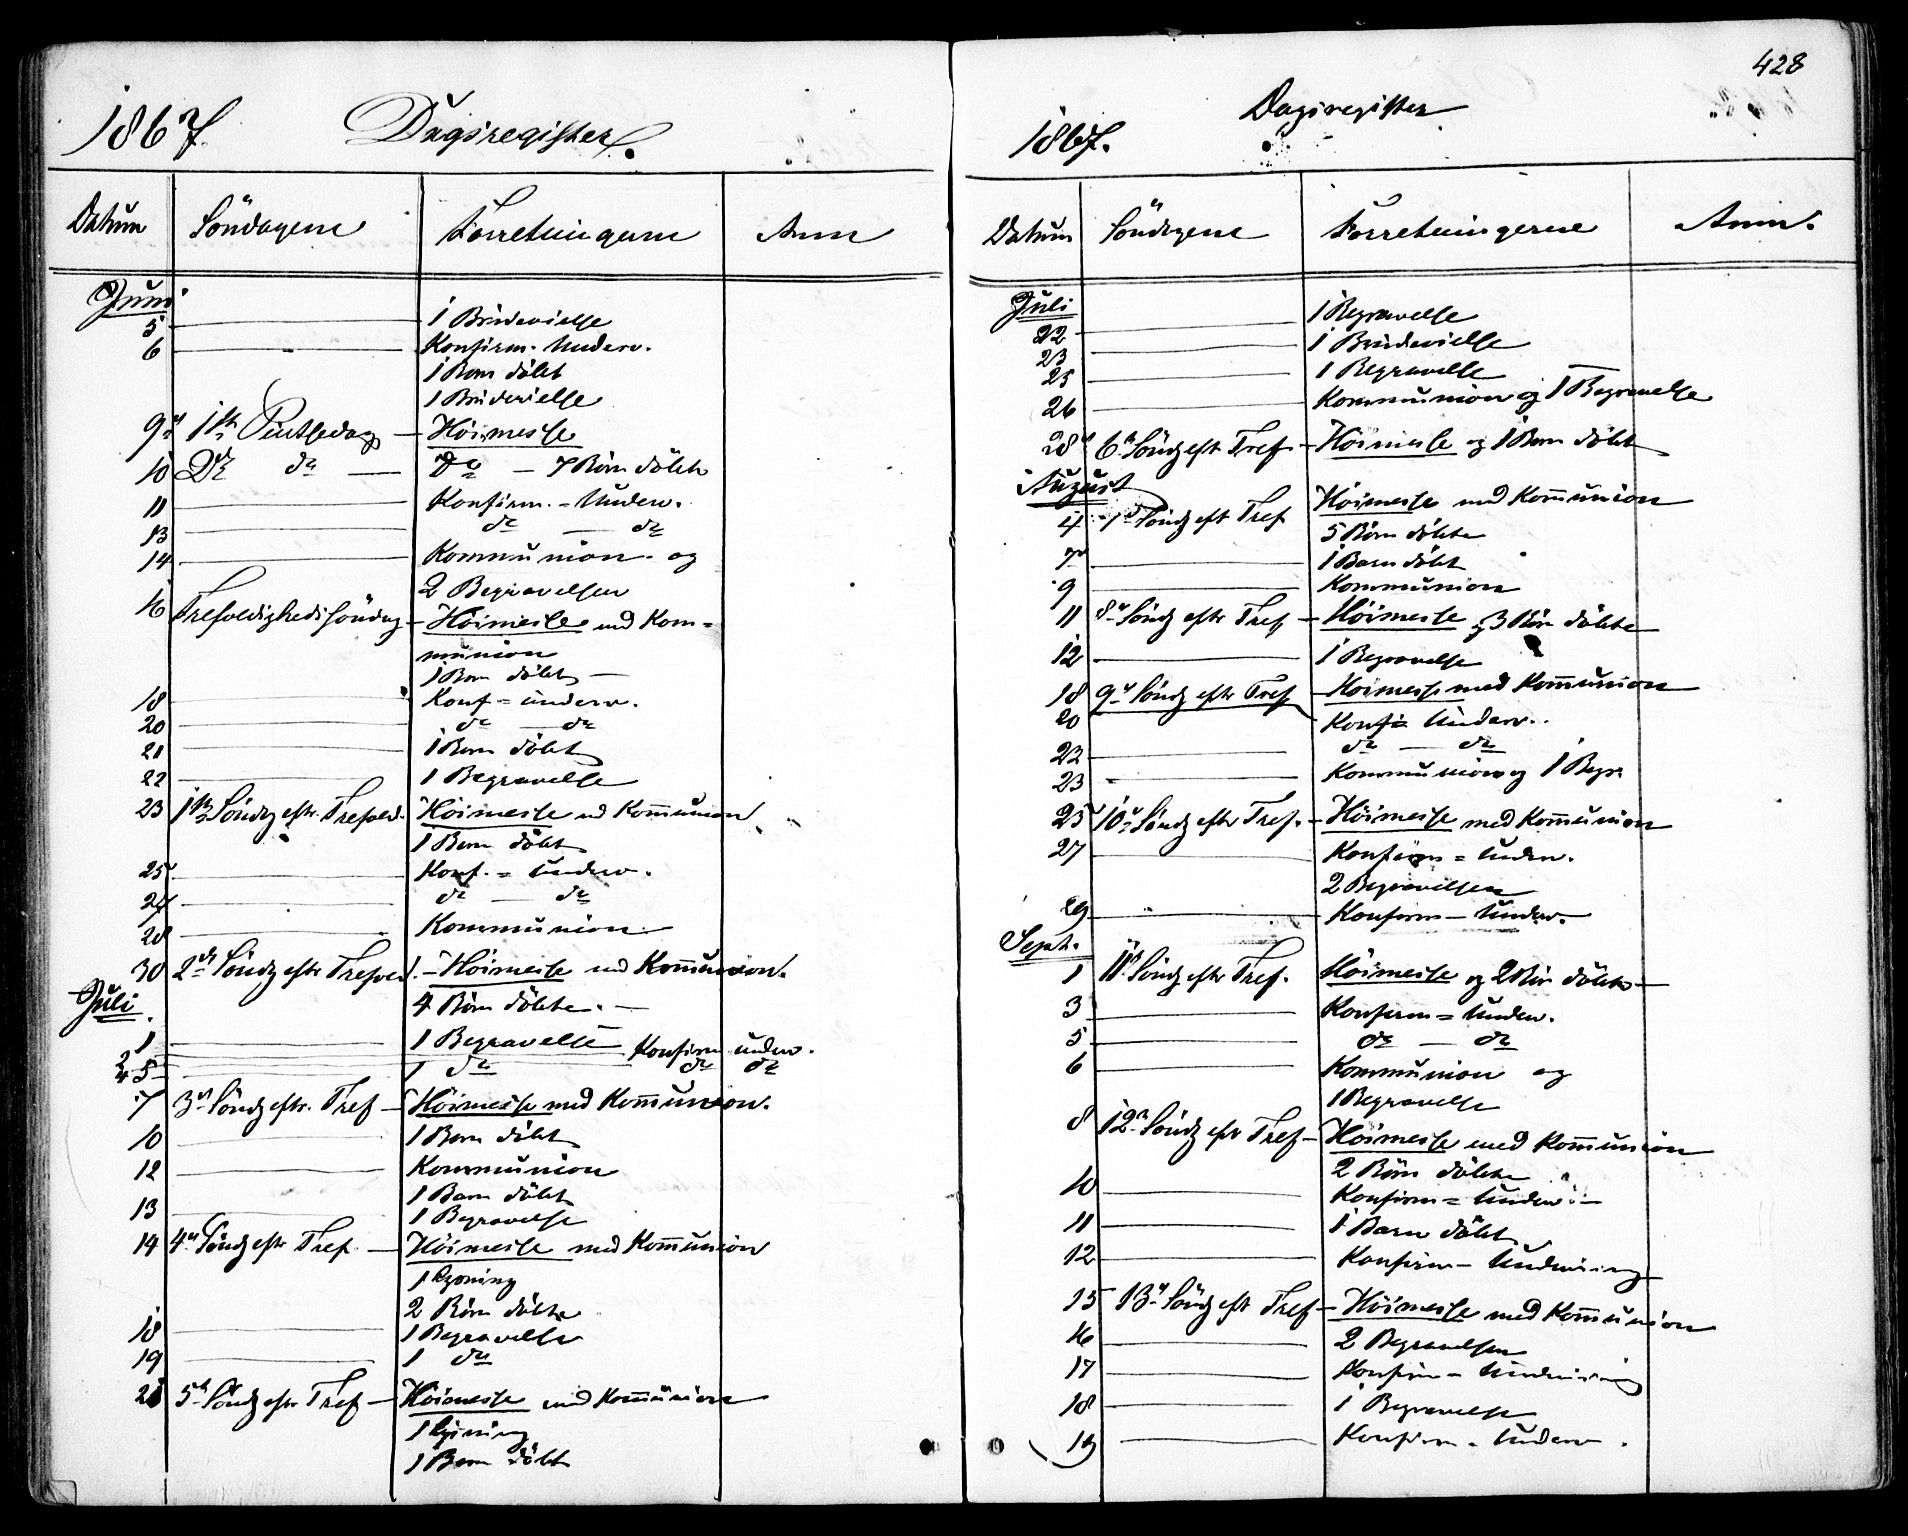 1867. Dagsregister.
Datum Söndagene Forretningerne Anm
Juni
5 1 Brudevielse
6 Konfirm. Underv.
1 Barn döbt
1 Brudevielse
9de 1ste Pintsedag - Höimesse
10 Do do - Do - 7 Börn döbte
11 Konfirm. - Underv.
13 do - do
14 Kommunion og
2 Begravelser
16 Trefoldighedssöndag - Höimesse med Kom=
munion
1 Barn döbt
18 Konf = underv.
20 do - do
21 1 Barn döbt
22 1 Begravelse
23 1ste Söndg eftr. Trefold. Höimesse md Kommunion
1 Barn döbt
25 Konf. = Underv.
27 do - do
28 Kommunion
30 2den Söndg eftr Trefold. - Höimesse med Kommunion.
Juli. 4 Börn döbte. -
1 1 Begravelse
2 Konfirm underv.
4 5 1 do do do
7 3de Söndg eftr. Tref - Höimesse med Kommunion.
10 1 Barn döbt
12 Kommunion
1 Barn döbt
13 1 Begravelse
14 4de Söndg eftr Tref - Höimesse med Kommunion
1 Lysning
2 Börn döbte
18 1 Begravelse
19 1 do
21 5te Söndg eftr Tref - Höimesse med Kommunion
1 Lysning
1 Barn döbt
428
1867. Dagsregister
Datum Söndagene Forretningerne Anm.
Juli
22 1 Begravelse
23 1 Brudevielse
25 1 Begravelse
26 Kommunion og 1 Begravelse
28de 6te Söndg eft Tref - Höimesse og 1 Barn döbt
August
4 7de Söndg eft Tref Höimesse med Kommunion
5 Börn döbte
7 1 Barn döbt
9 Kommunion
11 8de Söndg eftr Tref - Höimesse og 3 Börn döbte
12 1 Begravelse
18 9de Söndg eftr Tref - Höimesse med Kommunion
20 Konf = Underv..
22 do - do
23 Kommunion og 1 Begr.
25 10de Söndg eftr Tref. - Höimesse med Kommunion
27 Konfirm = Underv.
2 Begravelser
29 Konfirm - Underv.
Sept.
1 11te Söndg eftr Tref. Höimesse og 2 Börn döbte -
3 Konfirm = Underv.
5 do - do
6 Kommunion og
1 Begravelse
8 12te Söndg eftr Tref - Höimesse med Kommunion
2 Börn döbte
10 Konfirm = Underv. -
11 1 Barn döbt
12 Konfirm - Underviisning
15 13de Söndg eft Tref - Höimesse med Kommunion
16 2 Begravelser
17 Konfirm - Underviisning
18 1 Begravelse
19 Konfirm - Underv.